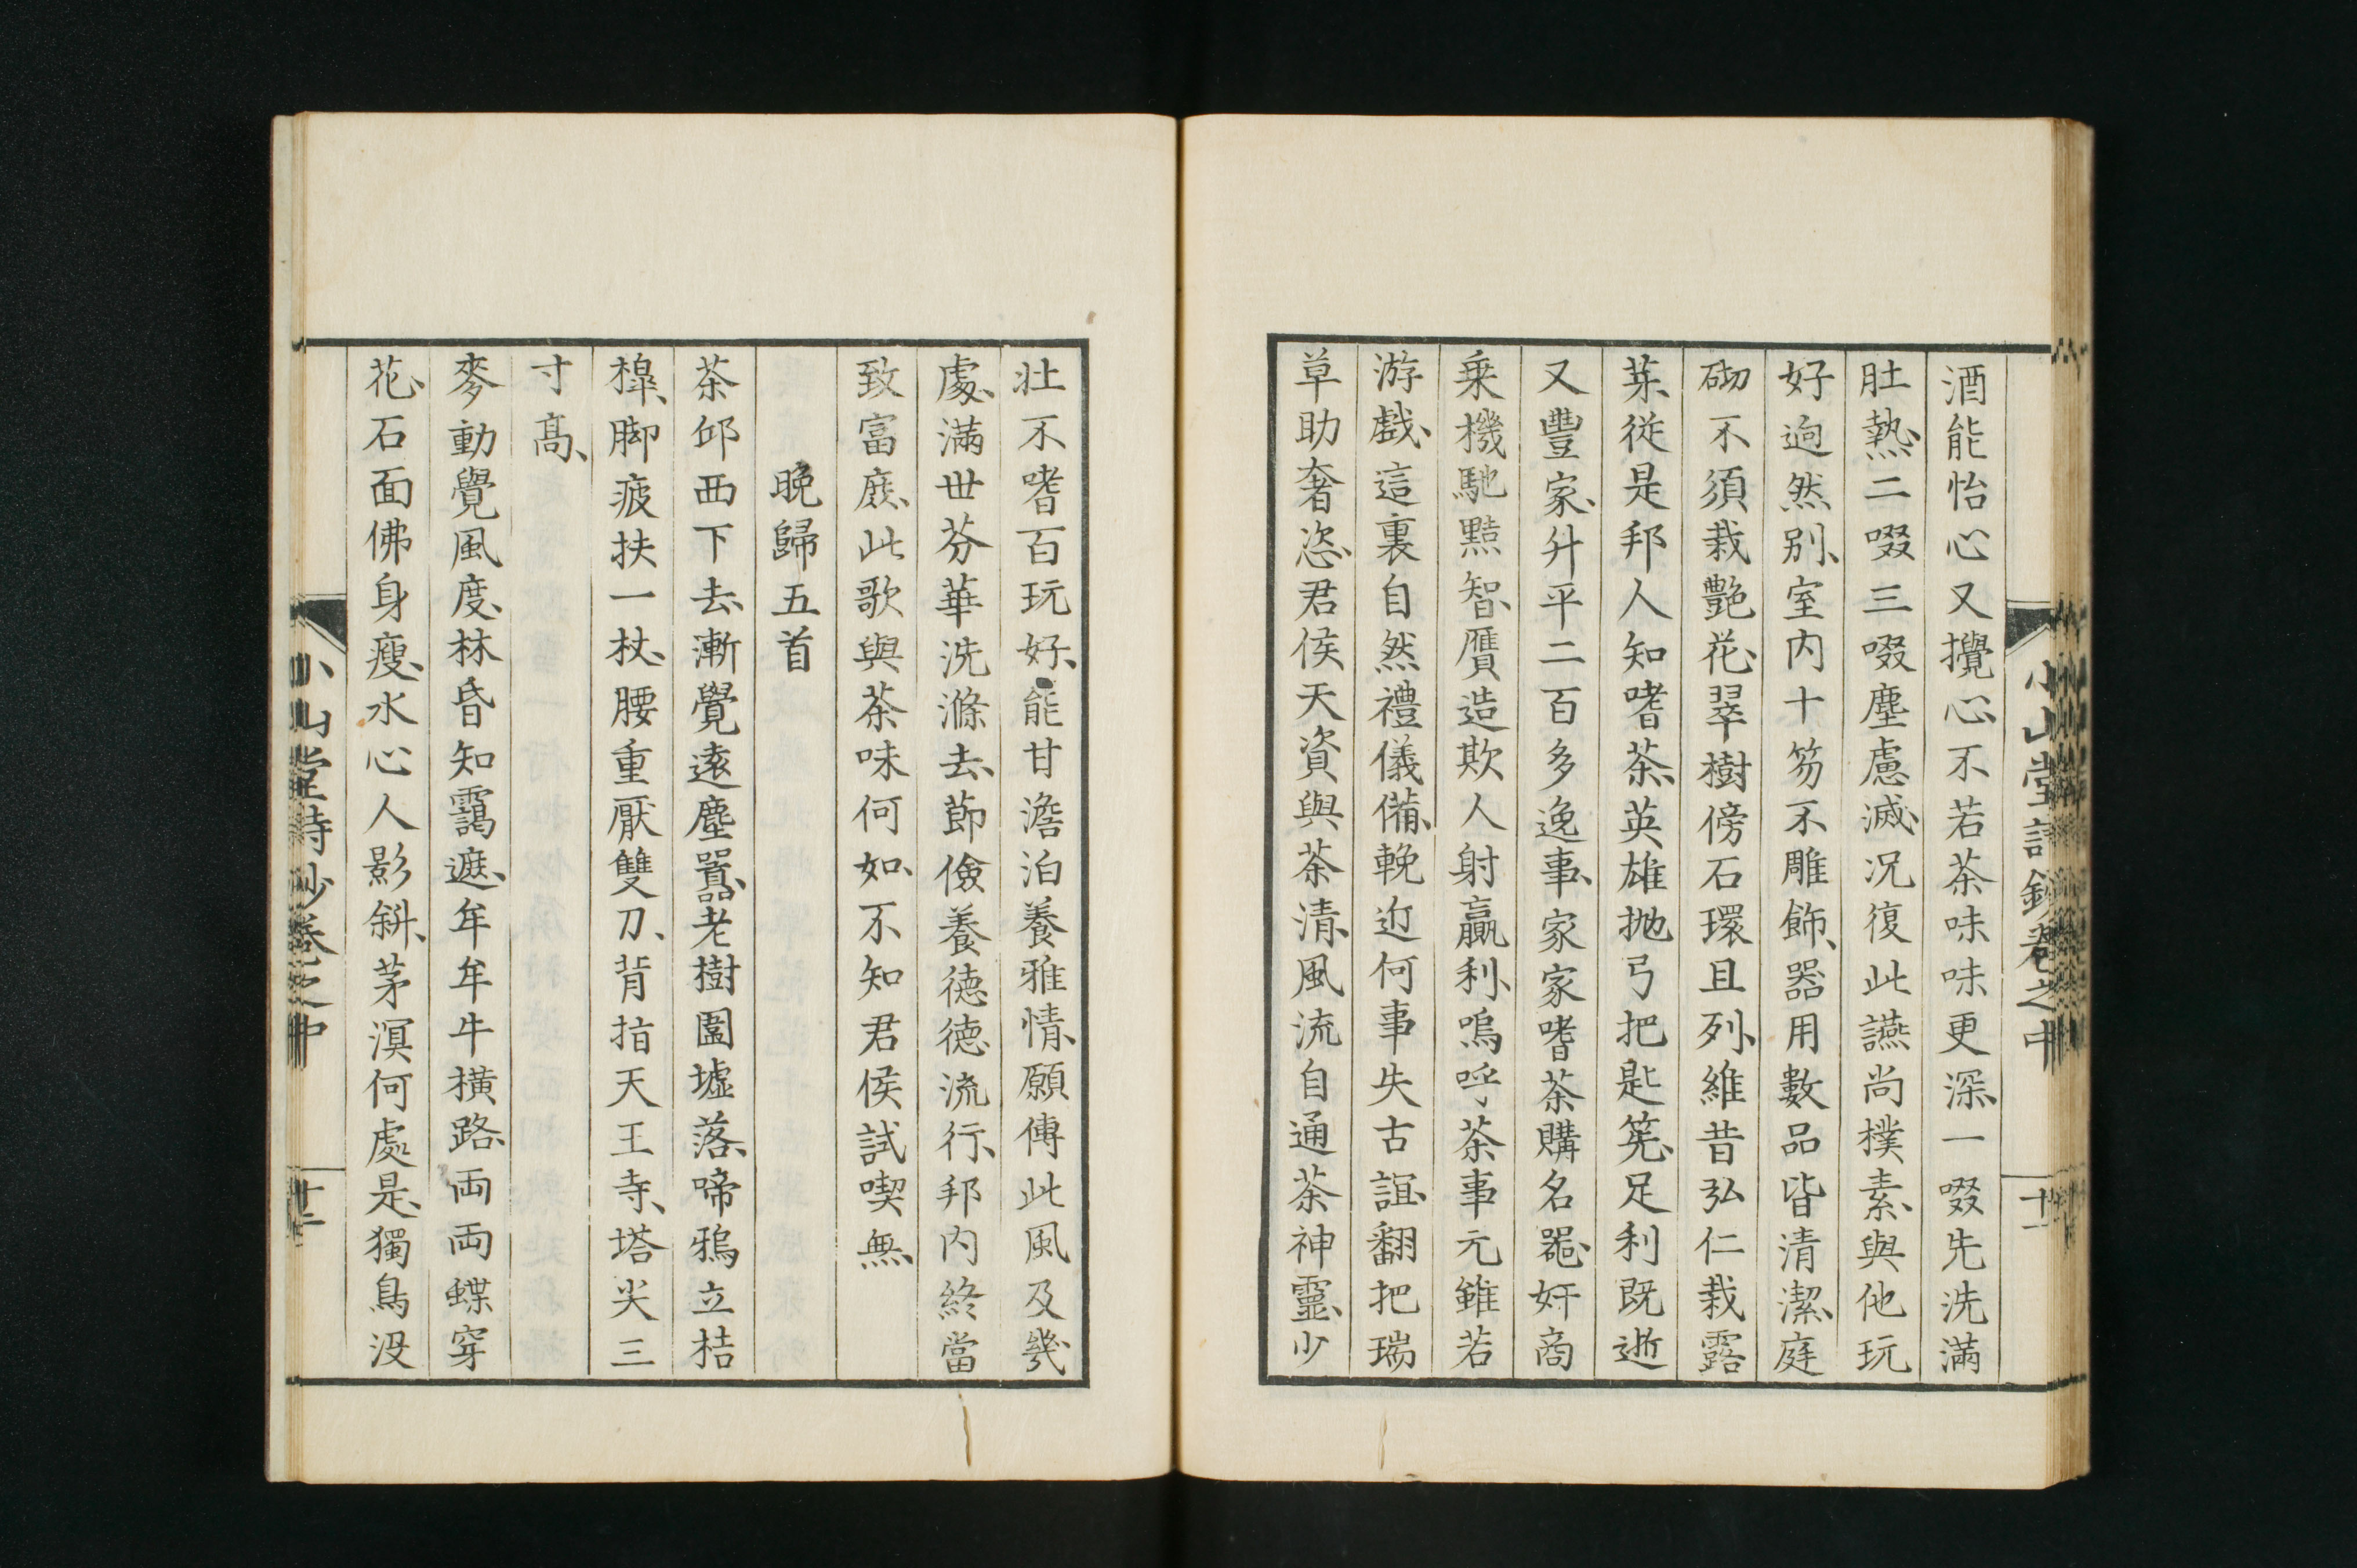 小山堂詩鈔卷之中
十一
酒能怡心又攪心、不若茶味味更深、一啜先洗滿
肚熱、二啜三啜塵慮滅、況復此讌尚樸素、與他玩
好逈然別、室内十笏不雕飾、器用數品皆清潔、庭
砌不須栽艷花、翠樹傍石環且列、維昔弘仁栽露
茱、從是邦人知嗜茶、英雄抛弓把匙筅、足利既逝
又豐家、升平二百多逸事、家家嗜茶購名器、奸商
乗機馳黠智、贋造欺人射贏利、嗚呼茶事元雖若
游戲、這裏自然禮儀備、輓近何事失古誼、翻把瑞
草助奢恣、君侯天資與茶清、風流自通茶神靈、少
壯不嗜百玩好、能甘澹泊養雅情、願傳此風及幾
處、滿世芬華洗滌去、節儉養德德流行、邦内終當
致富庶、此歌與茶味何如、不知君侯試喫無、
晚歸五首
茶邱西下去、漸覺遠塵囂、老樹圍墟落、啼鴉立桔
槹、脚疲扶一杖、腰重厭雙刀、背指天王寺、塔尖三
寸高、
麥動覺風度、林昏知靄遮、牟牟牛横路、両両蝶穿
花、石面佛身瘦、水心人影斜、茅溟何處是、獨鳥没
小山堂詩鈔卷之中
十二